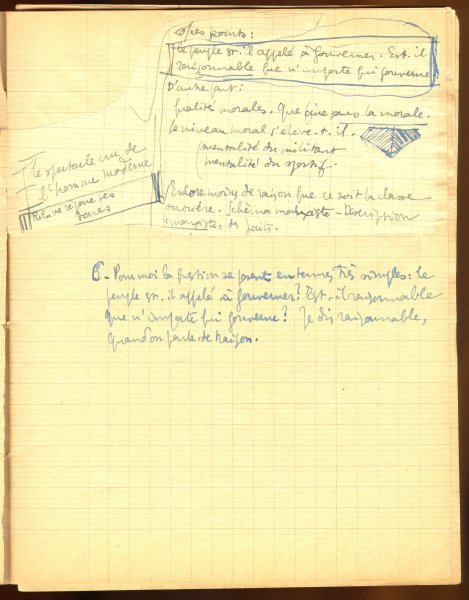 points :
le peuple est-il appelé à gouverner. Est-il
raisonnable que n'importe qui gouverne
D'autre part :
qualités morales. Que pense sans la morale.
le niveau moral s'élève-t-il.
(mentalité du militant
mentalité du sportif.
le spectacle de
l'homme moderne
Encore moins de raison que ce soit la classe
ouvrière. Schéma marxiste - Description
marxiste, des faits.
C - Pour moi la question se posent en termes très simples : le
peuple est-il appelé à gouverner ? Est-il raisonnable
que n'importe qui gouverne ? Je dis raisonnable,
quand on parle de raison.